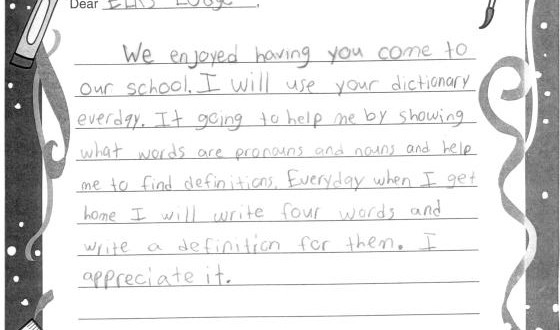 Dear Elks Lodge,
We enjoyed having you come to
our school. I will use your dictionary
everday. It going to help me by showing
what words are pronouns and nouns and help
me to find definitions. Everyday when I get
home I will write four words and
write a definition for them. I
appreciate it.